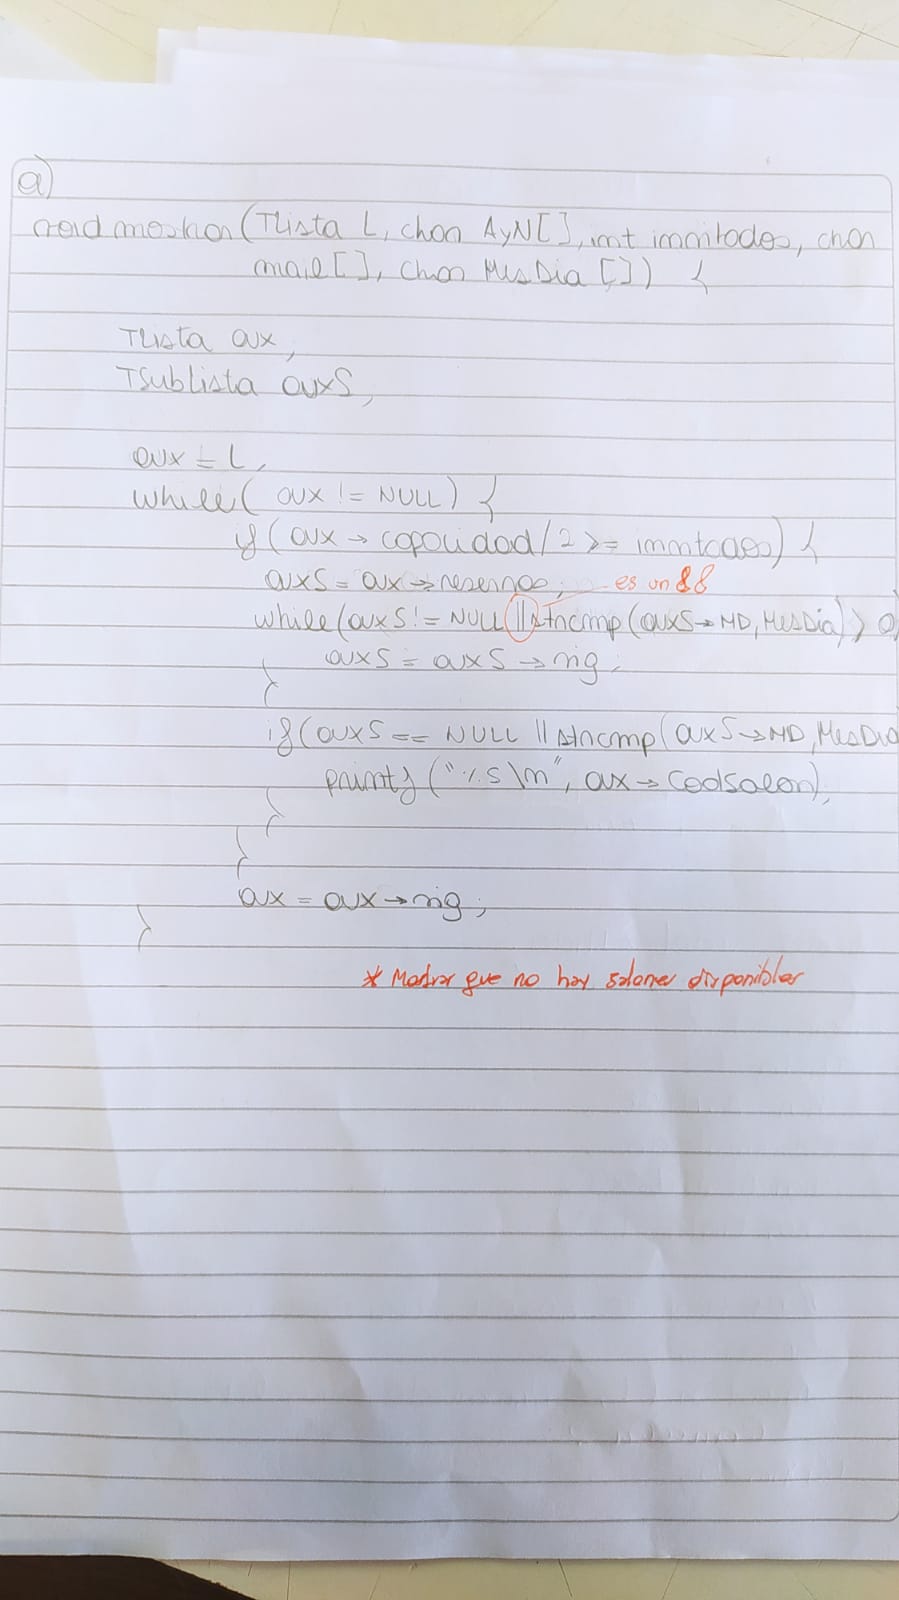 a)
void mostrar (TLista L, char AyN[], int invitados, char
mail[], char MesDia[]) {
TLista aux;
TSublista auxS;
aux = L;
while( aux != NULL) {
if (aux → capacidad/2 >= invitados) {
auxS = aux → reservas; es un &&
while (auxS != NULL || strcmp(auxS → MD, MesDia) > 0
auxS = auxS → sig;
}
if (auxS == NULL || strcmp (auxS → MD, MesDia
printf ("%s\n", aux → CodSalon);
}
}
aux = aux → sig;
}
* Mostrar que no hay salones disponibles